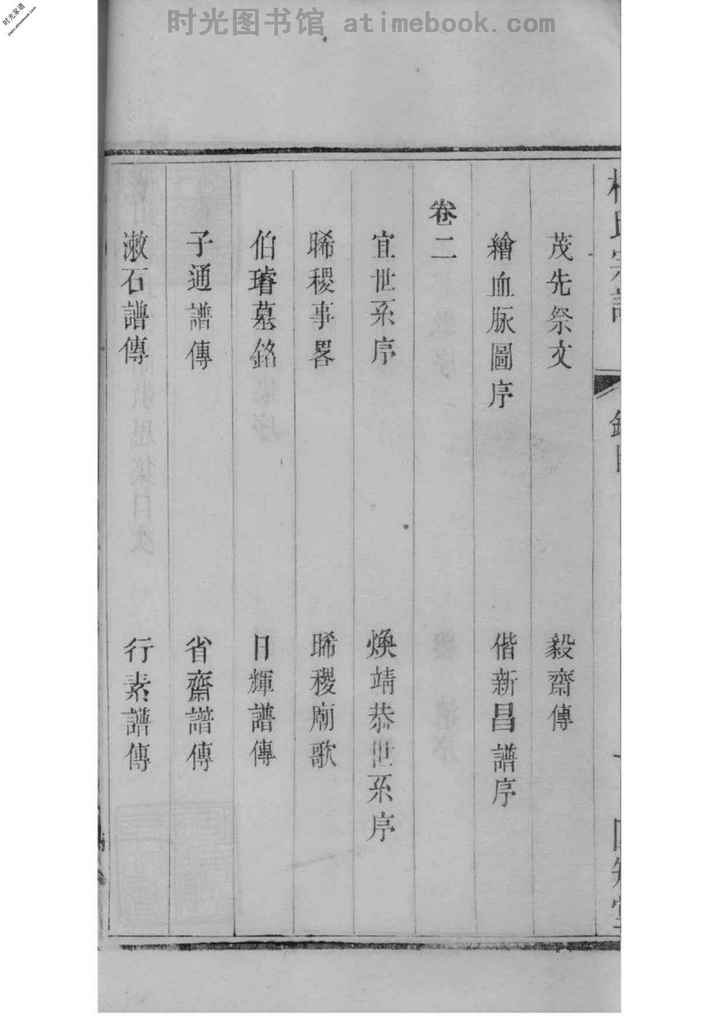 时光图书馆 atimebook.com
茂先祭文
毅齋傳
繪血脉圖序
偕新昌譜序
卷二
宜世系序
煥靖恭世系序
晞稷事畧
晞稷廟歌
伯璿墓銘
日輝譜傳
子通譜傳
省齋譜傳
漱石譜傳
行素譜傳